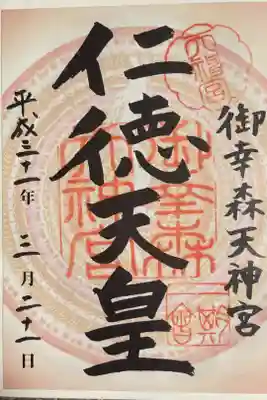 御幸森天神宮
仁徳天皇
御幸森
天神宮
平成三十一年 三月二十一日